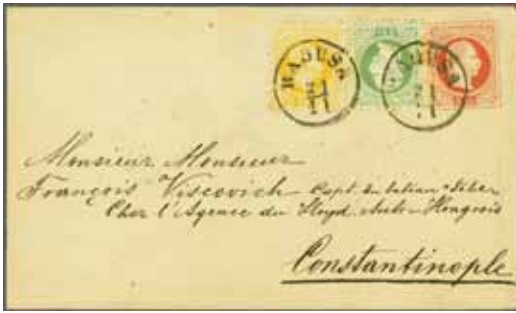 RAGUSA
RAGUSA
Monsieur Monsieur
François Viscovich Capt. du
Chez l'Agence du Lloyd Austro-Hongrois
Constantinople